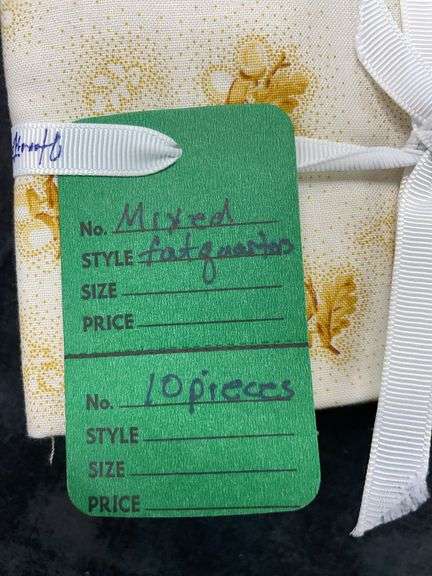 No. Mixed
STYLE fatquarters
SIZE
PRICE
No. 10 pieces
STYLE
SIZE
PRICE